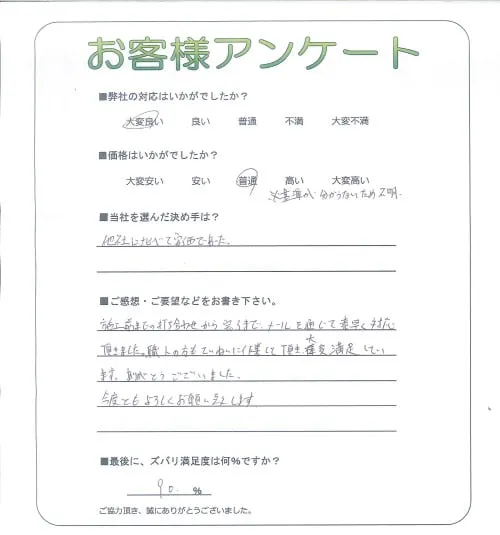 お客様アンケート
■弊社の対応はいかがでしたか？
大変良い 良い 普通 不満 大変不満
■価格はいかがでしたか？
大変安い 安い 普通 高い 大変高い
※基準が分からないため不明.
■当社を選んだ決め手は？
他社に比べて安価であった.
■ご感想・ご要望などをお書き下さい。
施工前までの打ち合わせから完了まで、メールを通じて素早く対応
頂きました。職人の方もていねいに作業して頂き大変満足してい
ます。ありがとうございました。
今後ともよろしくお願い致します
■最後に、ズバリ満足度は何％ですか？
90. ％
ご協力頂き、誠にありがとうございました。